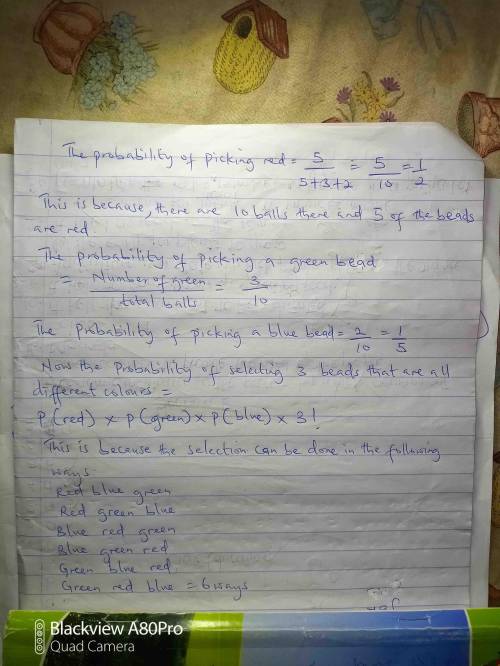 The probability of picking red = 5/5+3+2 = 5/10 = 1/2
This is because, there are 10 balls there and 5 of the beads
are red
The probability of picking a green bead
= Number of green/total balls = 3/10
The Probability of picking a blue bead = 2/10 = 1/5
Now the Probability of selecting 3 beads that are all
different colours =
P(red) x P(green) x P(blue) x 3!
This is because the selection can be done in the following
ways
Red blue green
Red green blue
Blue red green
Blue green red
Green blue red
Green red blue = 6 ways
Blackview A80Pro
Quad Camera